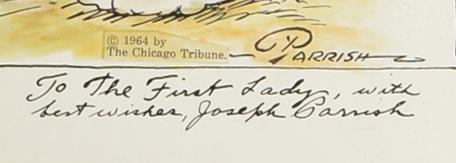 © 1964 by
The Chicago Tribune.
PARRISH
To The First Lady, with
best wishes, Joseph Parrish